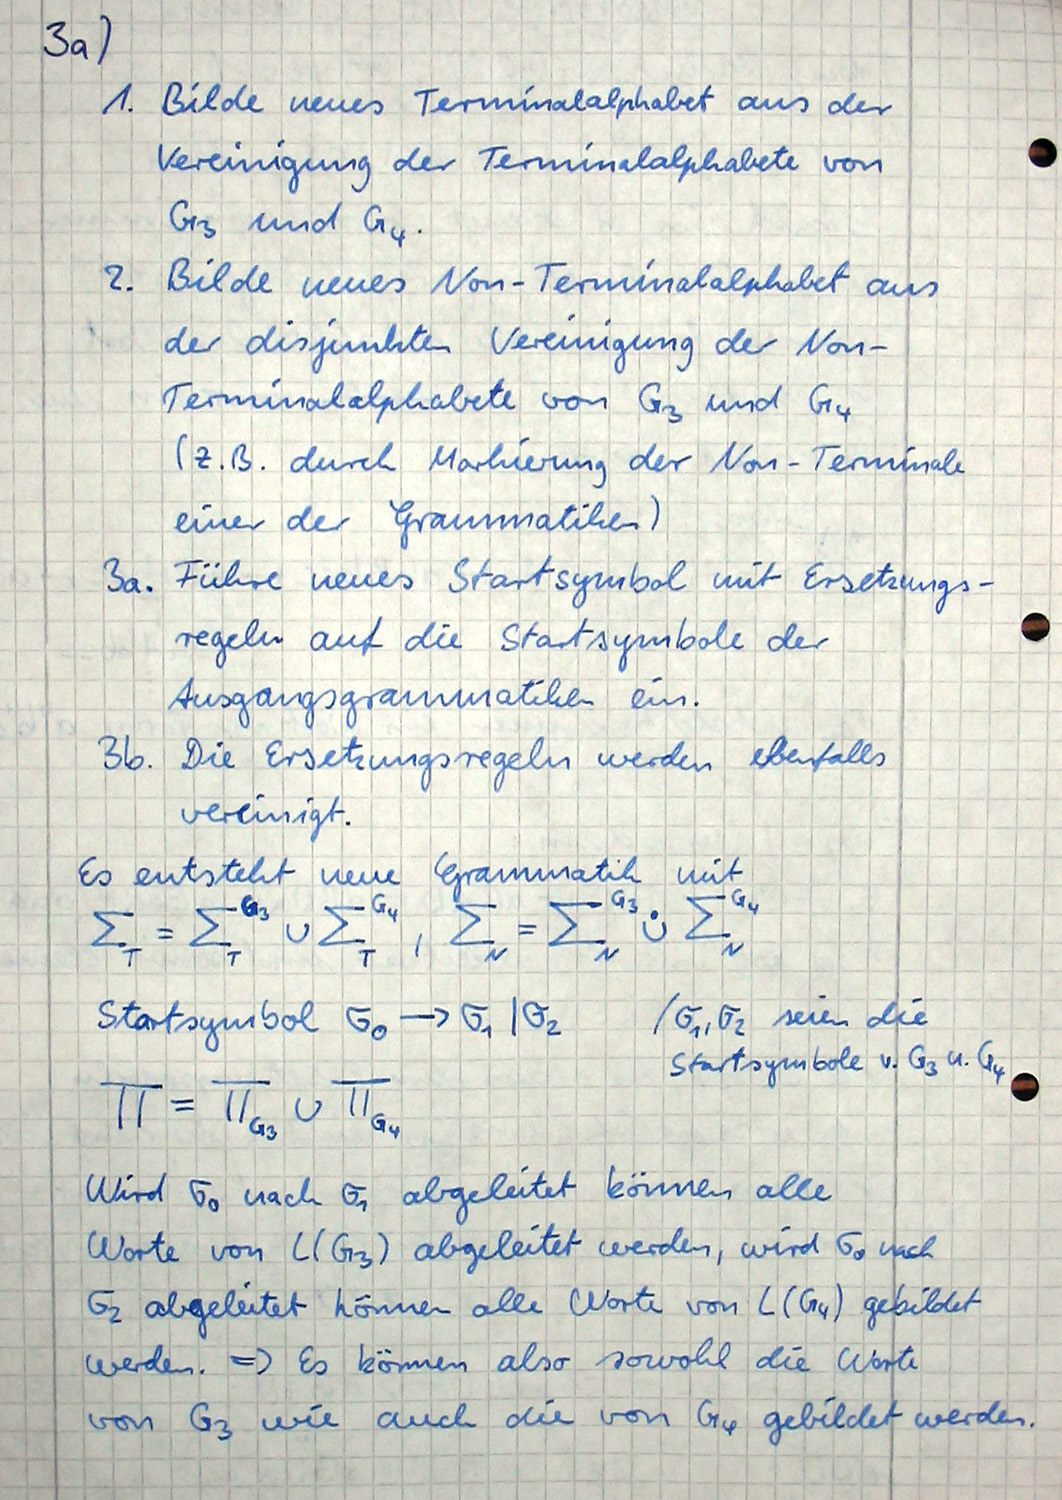 3a)
1. Bilde neues Terminalalphabet aus der
Vereinigung der Terminalalphabete von
G₃ und G₄.
2. Bilde neues Non-Terminalalphabet aus
der disjunkten Vereinigung der Non-
Terminalalphabete von G₃ und G₄
(z.B. durch Markierung der Non-Terminale
einer der Grammatiken)
3a. Führe neues Startsymbol mit Ersetzungs-
regeln auf die Startsymbole der
Ausgangsgrammatiken ein.
3b. Die Ersetzungsregeln werden ebenfalls
vereinigt.
Es entsteht neue Grammatik mit
Σ_T = Σ_T^G₃ ∪ Σ_T^G₄ , Σ_N = Σ_N^G₃ ∪̇ Σ_N^G₄
Startsymbol σ₀ → σ₁ | σ₂ /σ₁, σ₂ seien die
Startsymbole v. G₃ u. G₄
Π = Π_G₃ ∪ Π_G₄
Wird σ₀ nach σ₁ abgeleitet können alle
Worte von L(G₃) abgeleitet werden, wird σ₀ nach
σ₂ abgeleitet können alle Worte von L(G₄) gebildet
werden. => Es können also sowohl die Worte
von G₃ wie auch die von G₄ gebildet werden.